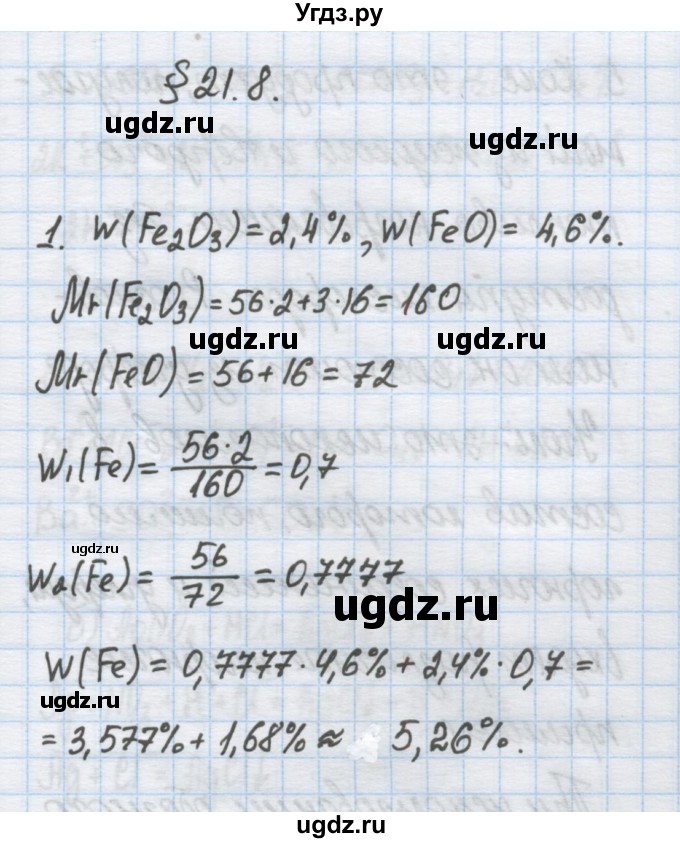 Угдз.ру
§ 21.8.
ugdz.ru
ugdz.ru
1. W(Fe₂O₃)=2,4%, W(FeO)= 4,6%.
Mr(Fe₂O₃)=56·2+3·16=160
ugdz.ru
ugdz.ru
Mr(FeO)=56+16=72
W₁(Fe)= 56·2/160 =0,7
ugdz.ru
W₂(Fe)= 56/72 =0,7777
ugdz.ru
W(Fe)=0,7777·4,6%+2,4%·0,7=
ugdz.ru
=3,577%+1,68%≈ 5,26%.
ugdz.ru
ugdz.ru